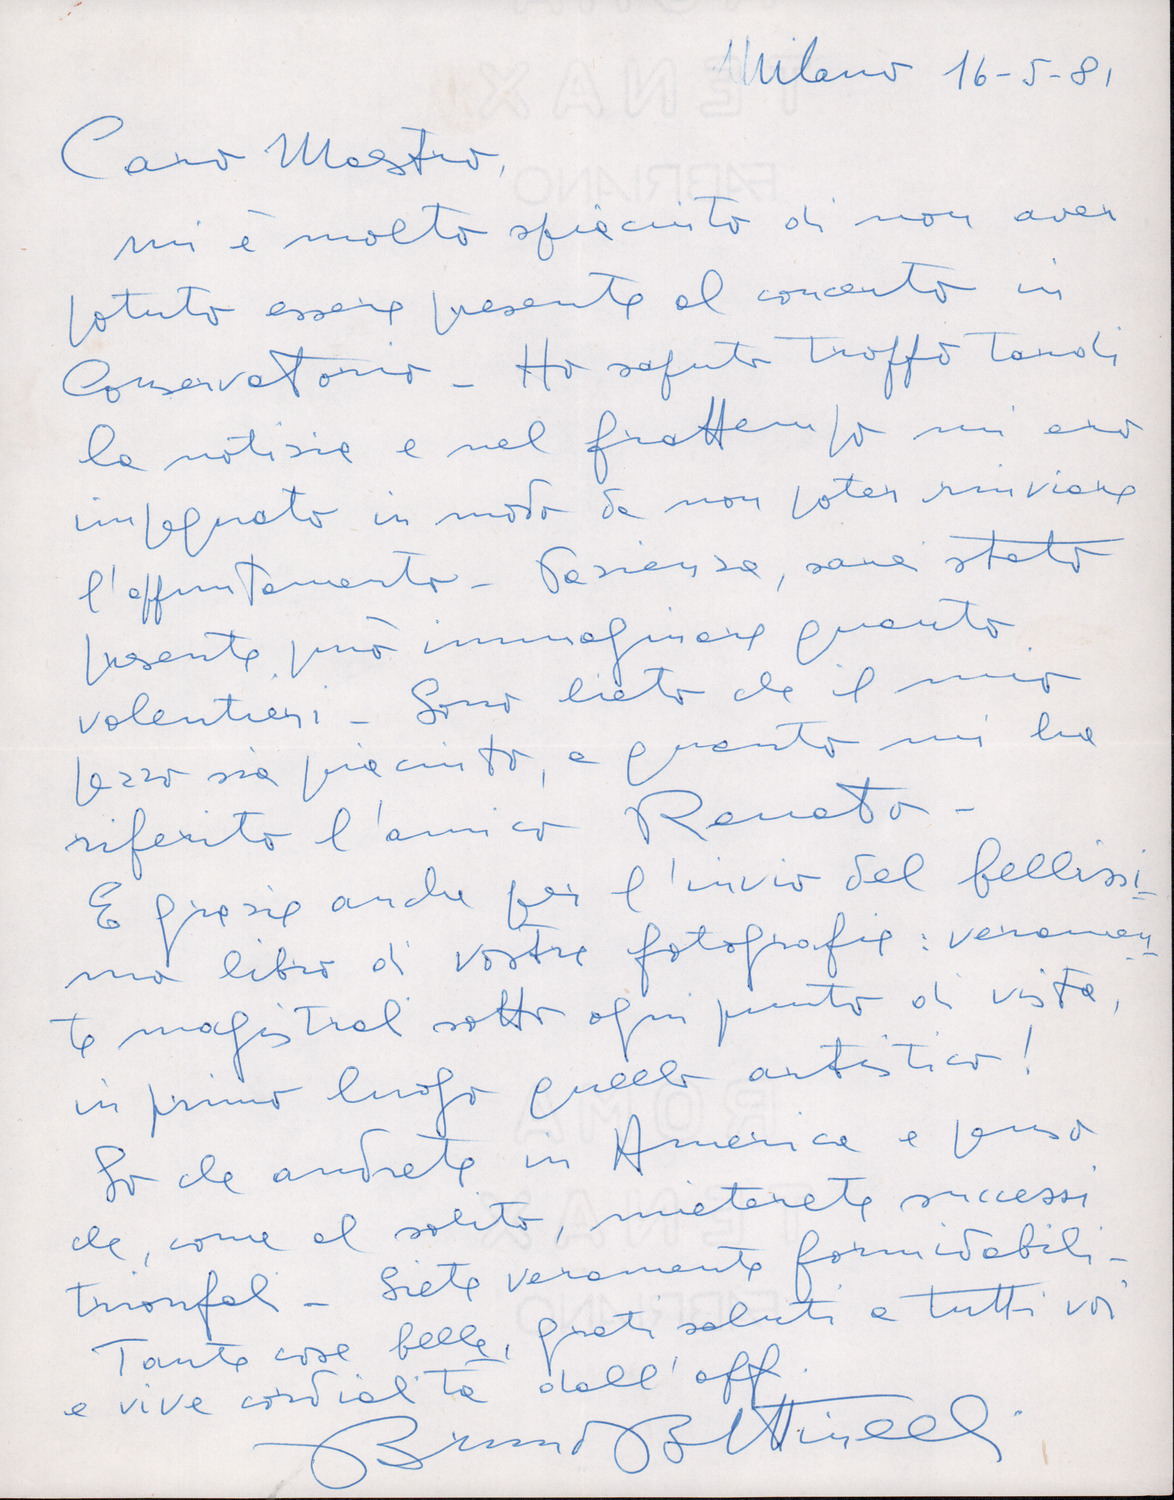 Milano 16-5-81
Caro Maestro,
mi è molto spiaciuto di non aver
potuto essere presente al concerto in
Conservatorio - Ho saputo troppo tardi
la notizia e nel frattempo mi ero
impegnato in modo da non poter rinviare
l'appuntamento - Pazienza, sarei stato
presente può immaginare quanto
volentieri - Sono lieto che il mio
pezzo sia piaciuto, a quanto mi ha
riferito l'amico Renato -
E grazie anche per l'invio del bellissi-
mo libro di vostre fotografie: veramen-
te magistrali sotto ogni punto di vista,
in primo luogo quello artistico!
So che andrete in America e penso
che, come al solito, mieterete successi
trionfali - Siete veramente formidabili -
Tante cose belle, grati saluti a tutti voi
e vive cordialità dall'aff.
Bruno Bettinelli
TENAX
FABRIANO
ROMA
TENAX
FABRIANO